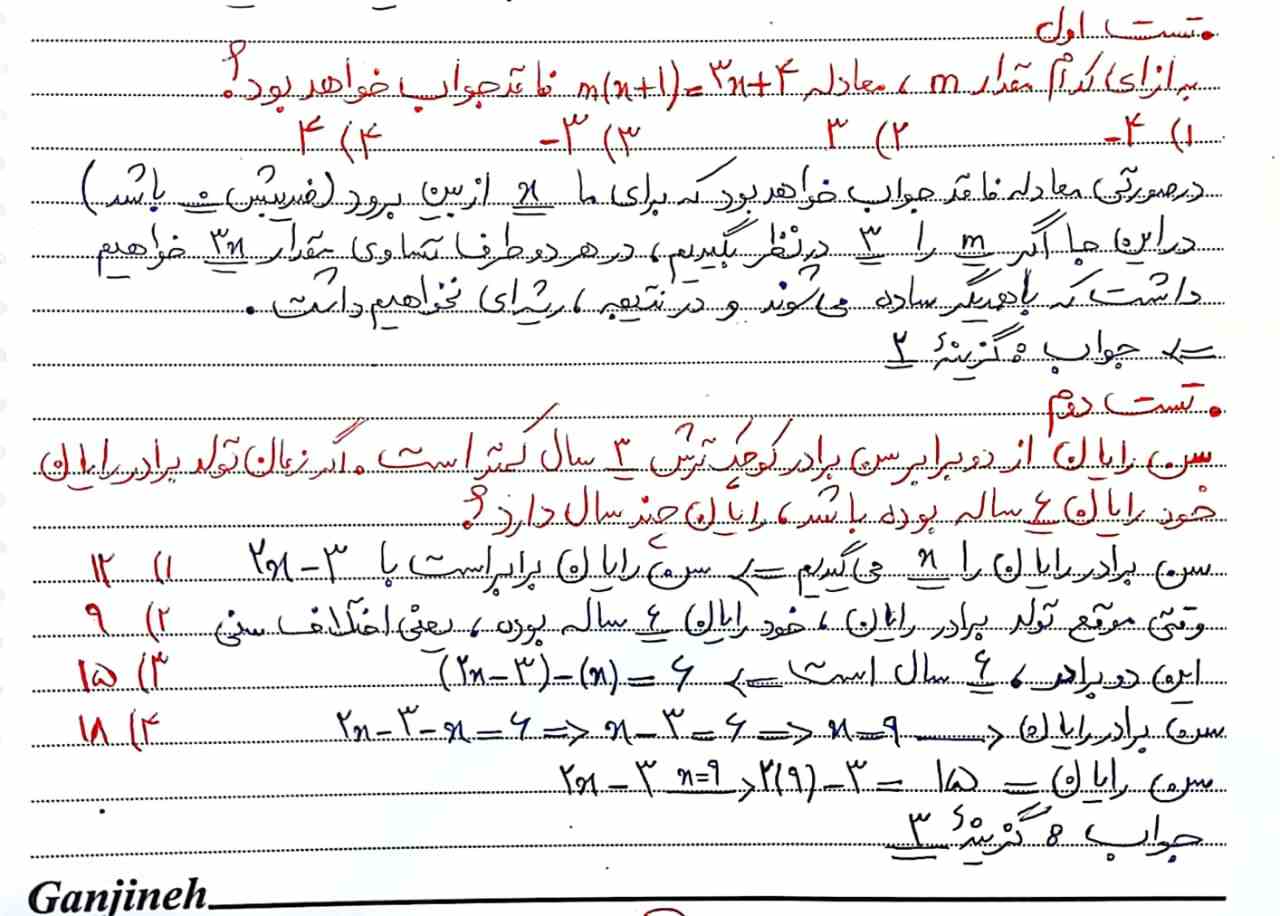 • تست اول
به ازای کدام مقدار m ، معادله m(x+1)=3x+4 فاقد جواب خواهد بود؟
۱) ۴- ۲) ۳ ۳) ۳- ۴) ۴
در صورتی معادله فاقد جواب خواهد بود که برای ما x از بین برود (ضریبش ۰ باشد)
در این جا اگر m را ۳ در نظر بگیریم، در هر دو طرف تساوی مقدار ۳x خواهیم
داشت که با همدیگر ساده می‌شوند و در نتیجه، ریشه‌ای نخواهیم داشت.
=> جواب: گزینهٔ ۲
• تست دوم
سن رایان از دو برابر سن برادر کوچک ترش ۳ سال کمتر است. اگر زمان تولد برادر رایان
خود رایان ۶ ساله بوده باشد، رایان چند سال دارد؟
سن برادر رایان را x می‌گیریم => سن رایان برابر است با ۲x-۳ ۱) ۱۲
وقتی موقع تولد برادر رایان، خود رایان ۶ ساله بوده، یعنی اختلاف سنی ۲) ۹
این دو برادر، ۶ سال است => (۲x-۳)-(x)=۶ ۳) ۱۵
۲x-۳-x=۶ => x-۳=۶ => x=۹ —> سن برادر رایان ۴) ۱۸
۲x-۳ x=۹ —> ۲(۹)-۳ = ۱۵ = سن رایان
جواب: گزینهٔ ۳
Ganjineh